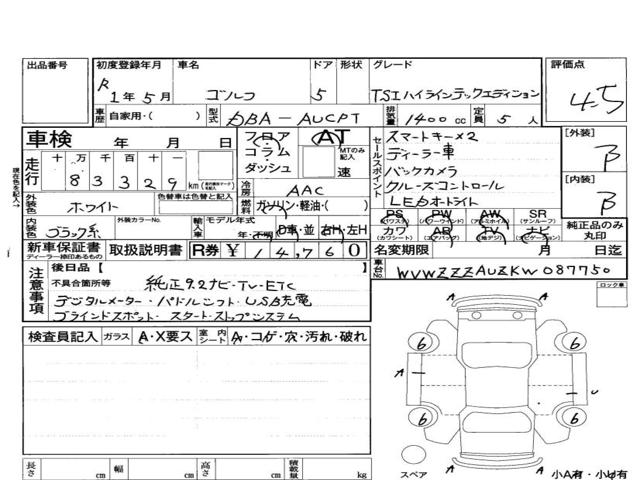 出品番号 初度登録年月 車名 ドア 形状 グレード 評価点
R 1年5月 ゴルフ 5 TSIハイラインテックエディション 4.5
車歴 自家用・( ) 型式 DBA-AUCPT 排気量 1400cc 定員 5人
車検 年 月 日 フロア コラム・ダッシュ AT MTのみ記入 速
走行 十 万 千 百 十 一
83329 km
冷房 AAC
外装色 ホワイト 色替車は色替と記入 燃料 ガソリン・軽油・( )
内装色 ブラック系 外装カラーNo. 輸入車 モデル年式 年・不明 D車・並 右H・左H
現在色を記入→
セールスポイント
スマートキー×2
ディーラー車
バックカメラ
クルーズコントロール
LEDオートライト
[外装] B
[内装] B
PS (パワステ) PW (パワーウインド) AW (アルミホイル) SR (サンルーフ)
カワ (カワシート) AB (エアバック) TV (地デジ) ナビ (ナビゲーション)
純正品のみ丸印
新車保証書 ディーラー捺印あるもの 取扱説明書 R券 ¥ 14,760 名変期限 月 日迄
注意事項 後日品 [ ] 車台No. WVWZZZAUZKW087750
不具合箇所等 純正9.2ナビ・TV・ETC
デジタルメーター・パドルシフト・USB充電
ブラインドスポット・スタートストップシステム
ロック車
検査員記入 ガラス A・X要ス 室内シート A・コゲ・穴・汚れ・破れ
A
6 6
A U
6 6
A
スペア 小A有・小U有
長さ cm 幅 cm 高さ cm 積載量 kg